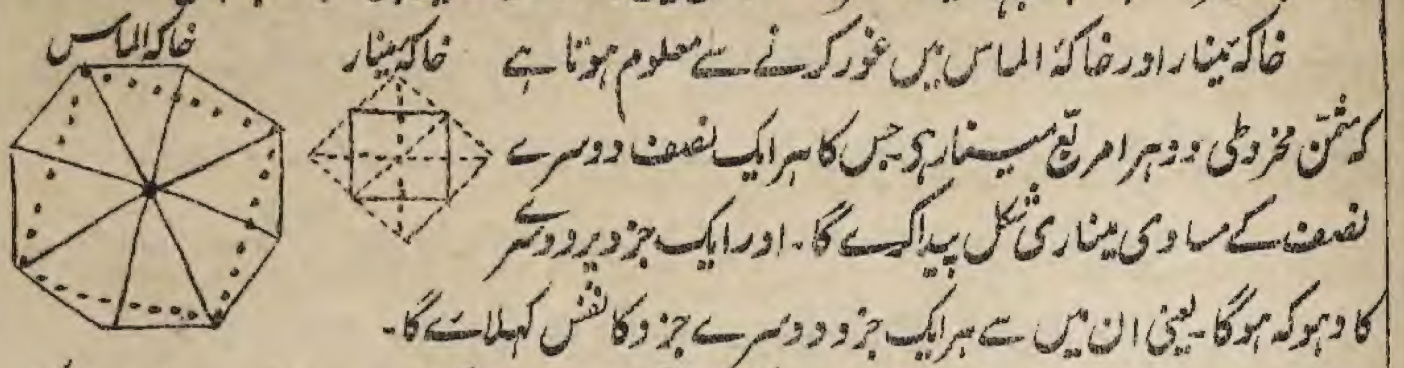 خاکہ الماس
خاکہ مینار
خاکہ مینار اور خاکۂ الماس میں غور کرنے سے معلوم ہوتا ہے
کہ مثمّن مخروطی دوہرا مربّع مینار ہو۔ جس کا ہر ایک نصف دوسرے
نصف کے مساوی میناری شکل پیدا کرے گا۔ اور ایک جزو پر دوسرے
کا دہوکہ ہوگا۔ یعنی ان میں سے ہر ایک جزو دوسرے جزو کا نقش کہلائے گا۔